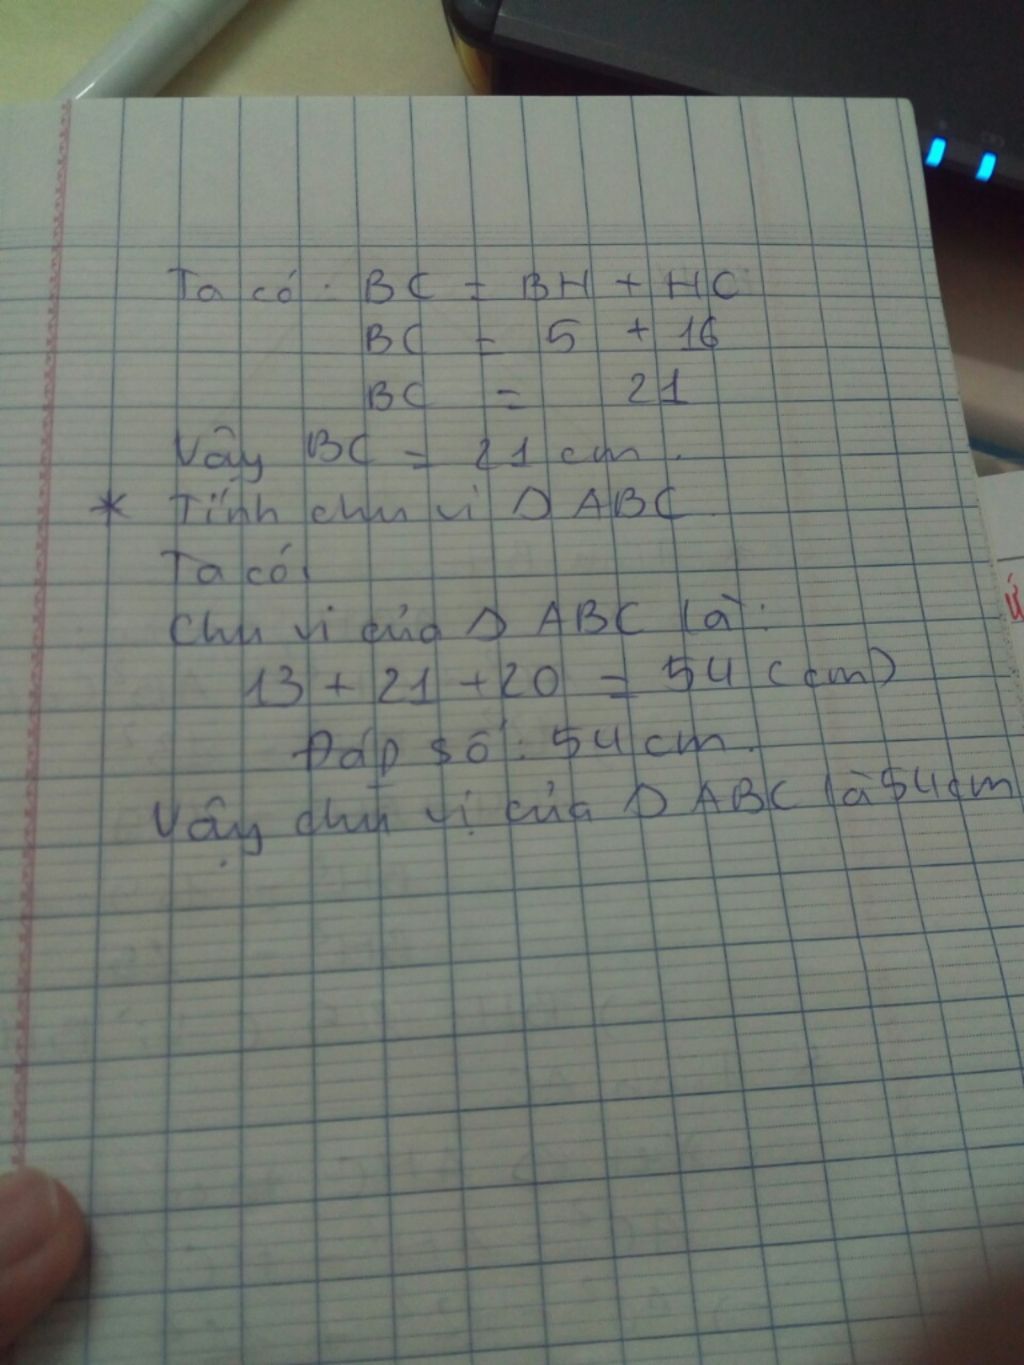 Ta có: BC = BH + HC
BC = 5 + 16
BC = 21
Vậy BC = 21 cm.
* Tính chu vi Δ ABC
Ta có:
Chu vi của Δ ABC là:
13 + 21 + 20 = 54 (cm)
Đáp số: 54 cm.
Vậy chu vi của Δ ABC là 54 cm
ứ